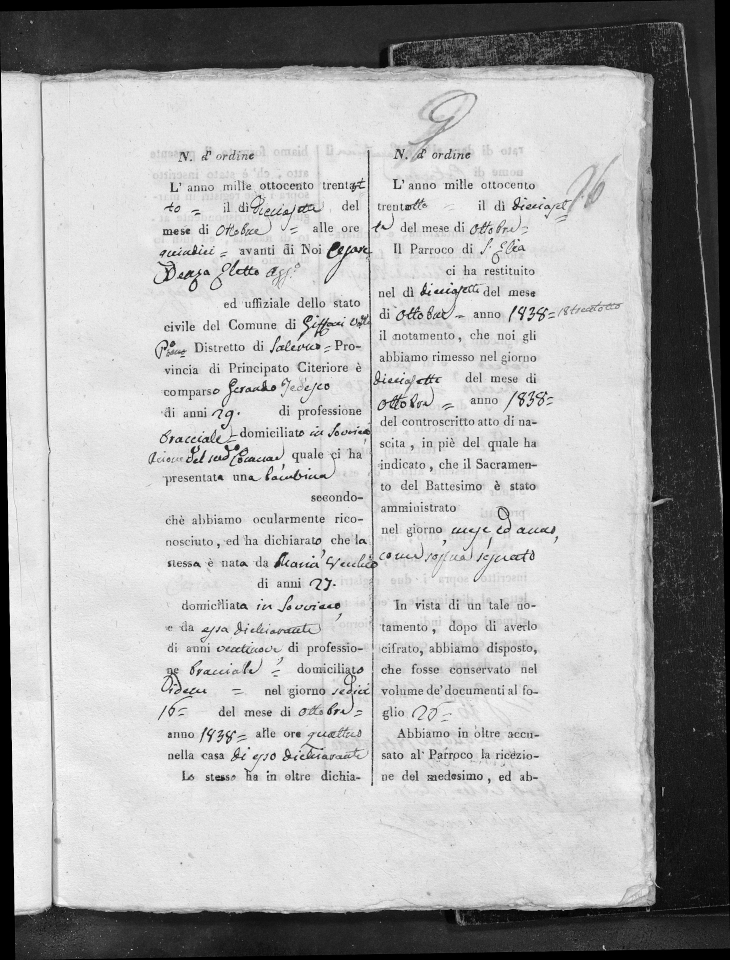 N. d'ordine
L'anno mille ottocento trentot
to = il di diciasette del
mese di Ottobre = alle ore
quindici = avanti di Noi Cesare
Denza Eletto Agg.to
ed uffiziale dello stato
civile del Comune di Giffoni Valle
Piana Distretto di Salerno = Pro-
vincia di Principato Citeriore è
comparso Gerardo Tedesco
di anni 29. di professione
bracciale = domiciliato in Sovvieco
quale ci ha
presentata una bambina
secondo-
chè abbiamo ocularmente rico-
nosciuto, ed ha dichiarato che la
stessa è nata da Maria
di anni 27.
domiciliata in Sovvieco,
e da esso dichiarante
di anni ventinove di professio-
ne bracciale = domiciliato
Videm = nel giorno sedici
16 = del mese di Ottobre =
anno 1838 = alle ore quattro
nella casa di esso dichiarante
Lo stesso ha in oltre dichia-
26
N. d'ordine
L'anno mille ottocento
trentotto = il di diciaset
te del mese di Ottobre =
Il Parroco di S. Elia
ci ha restituito
nel dì diciasette del mese
di Ottobre = anno 1838 = 18trentotto
il notamento, che noi gli
abbiamo rimesso nel giorno
diciasette del mese di
Ottobre = anno 1838 =
del controscritto atto di na-
scita, in piè del quale ha
indicato, che il Sacramen-
to del Battesimo è stato
amministrato
nel giorno, mese, ed anno,
come sopra segnato
In vista di un tale no-
tamento, dopo di averlo
cifrato, abbiamo disposto,
che fosse conservato nel
volume de' documenti al fo-
glio 26 =
Abbiamo in oltre accu-
sato al Parroco la ricezio-
ne del medesimo, ed ab-